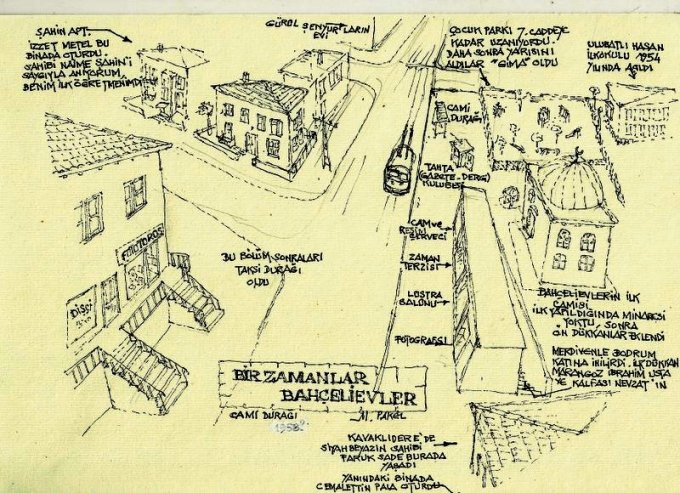 ŞAHİN APT.
İZZET METEL BU
BİNADA OTURDU.
SAHİBİ NAİME ŞAHİN'İ
SAYGIYLA ANIYORUM,
BENİM İLK ÖĞRETMENİMDİ
GÜROL ŞENYURT'LARIN
EVİ
ÇOCUK PARKI 7. CADDEYE
KADAR UZANIYORDU.
DAHA SONRA YARISINI
ALDILAR "GİMA" OLDU
ULUBATLI HASAN
İLKOKULU 1954
YILINDA AÇILDI
CAMİ
DURAĞI
TAHTA
(GAZETE-DERGİ)
KULUBESİ
CAM VE
RESİM ÇERVECİ
ZAMAN
TERZİSİ
LOSTRA
SALONU
FOTOĞRAFÇI
BU BÖLÜM SONRALARI
TAKSİ DURAĞI
OLDU
DİŞÇİ
BAHÇELİEVLERİN İLK
CAMİSİ
İLK YAPILDIĞINDA MİNARESİ
YOKTU, SONRA
ÖN DÜKKANLAR EKLENDİ
MERDİVENLE BODRUM
KATINA İNİLİRDİ. İLK DÜKKAN
MARANGOZ İBRAHİM USTA
VE KALFASI NEVZAT'IN
BİR ZAMANLAR
BAHÇELİEVLER
CAMİ DURAĞI
KAVAKLIDERE'DE
SİYAHBEYAZIN SAHİBİ
FARUK SADE BURADA
YAŞADI
YANINDAKİ BİNADA
CEMALETTİN PALA OTURDU